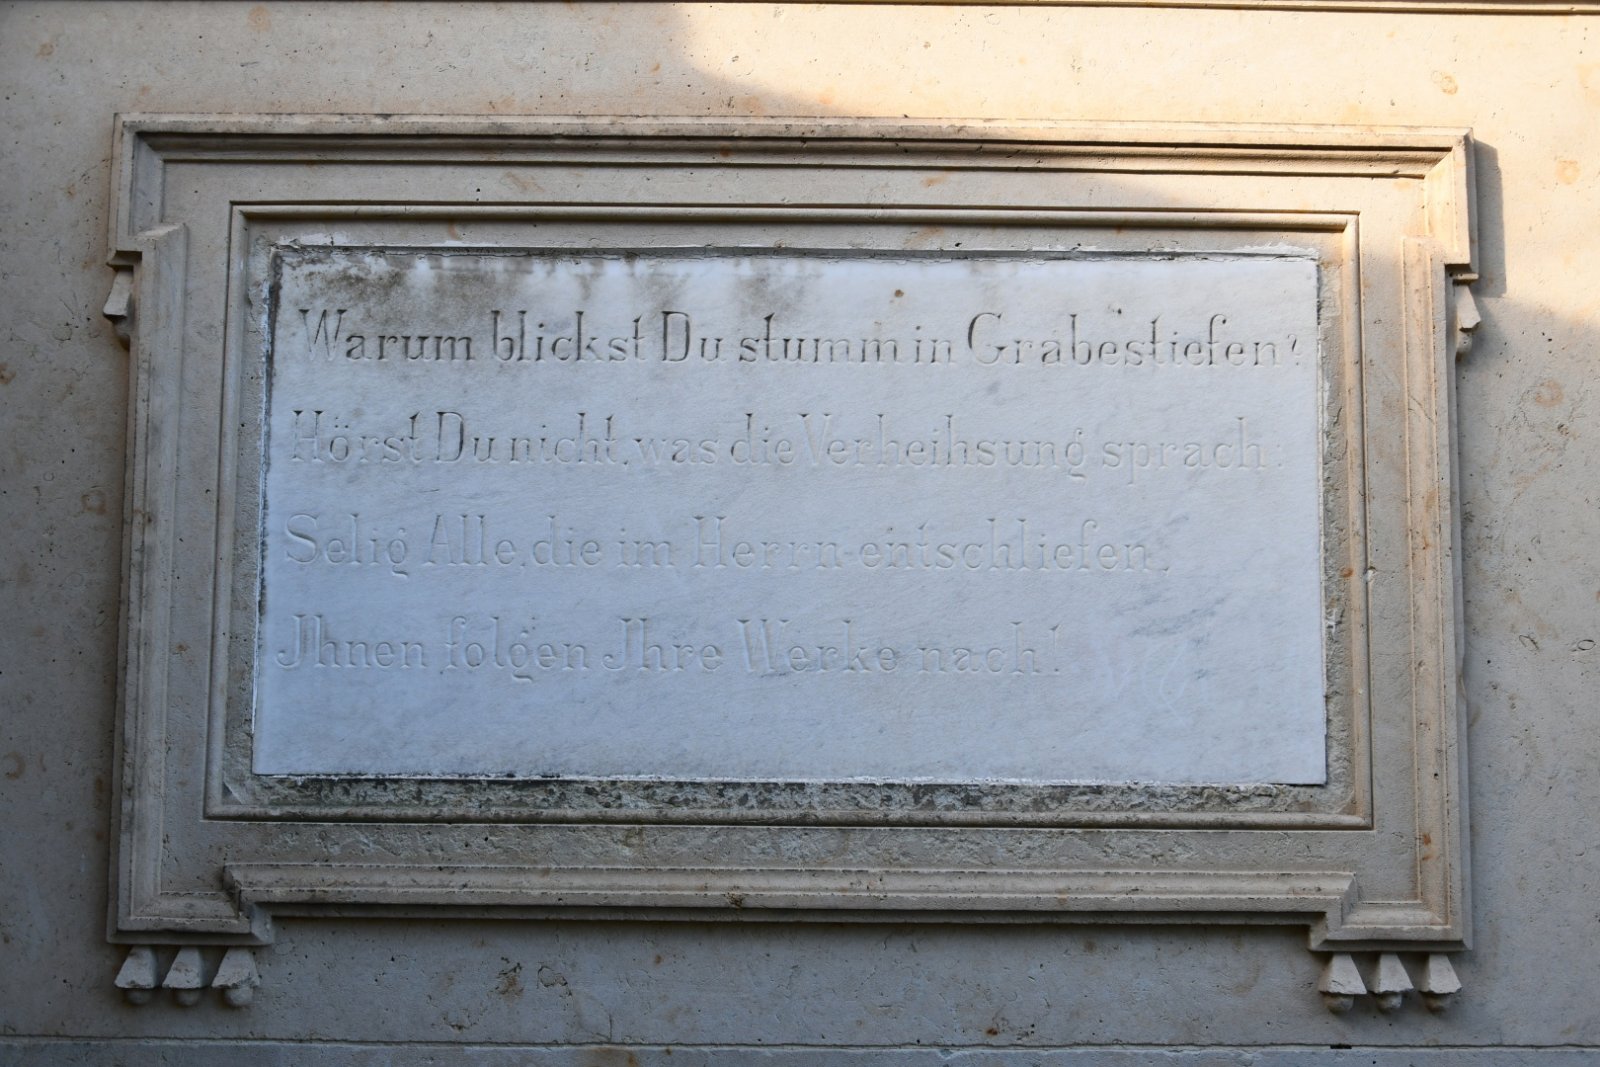 Warum blickst Du stumm in Grabestiefen?
Hörst Du nicht, was die Verheihsung sprach:
Selig Alle, die im Herrn entschliefen,
Jhnen folgen Jhre Werke nach!